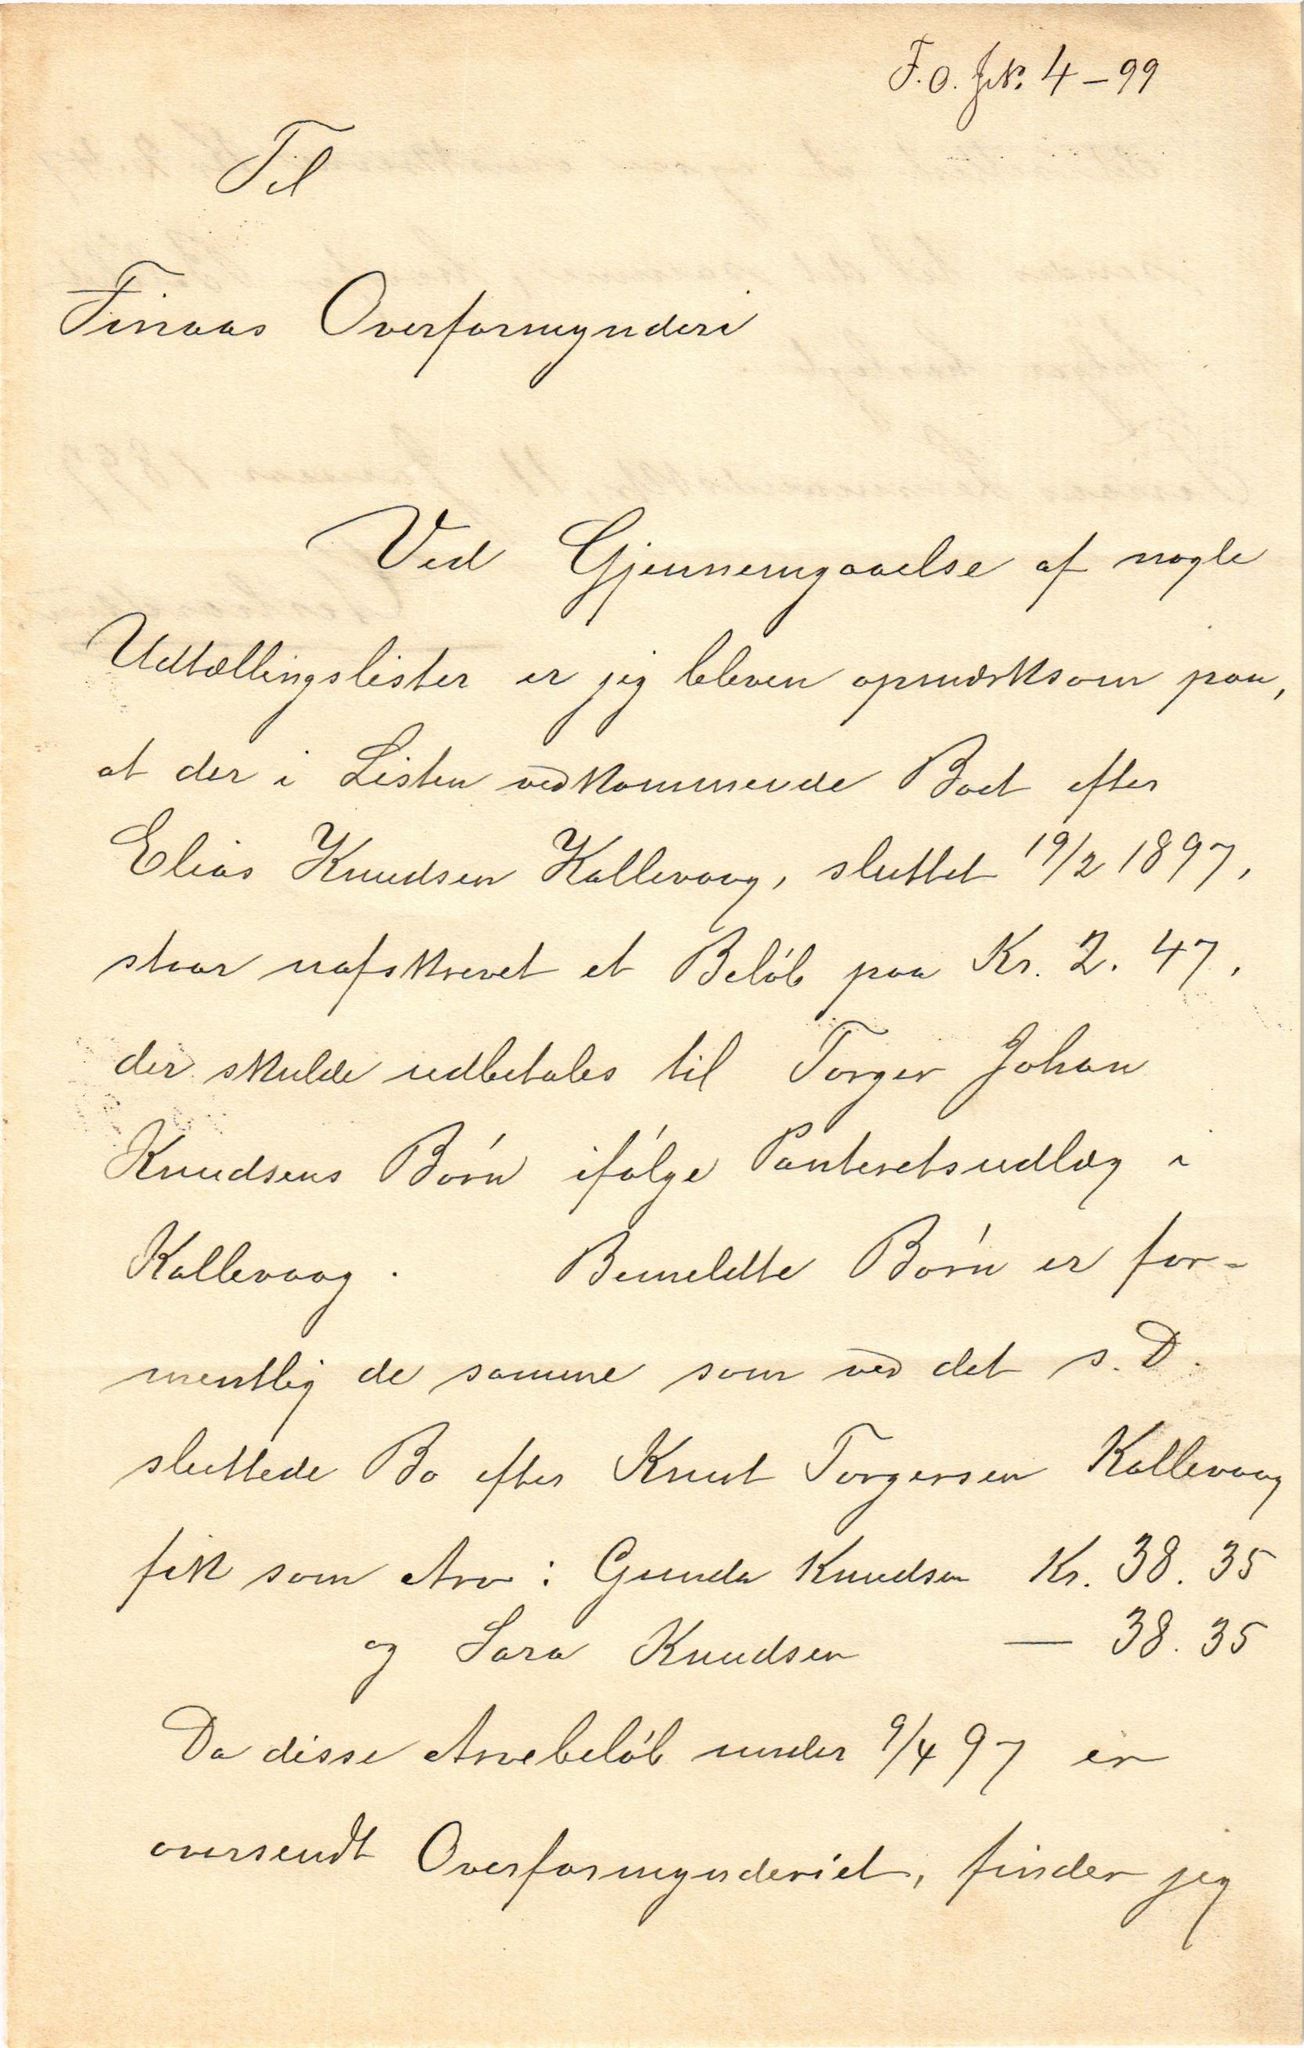 F.O. JN. 4-99
Til
Finaas Overformynderi
Ved Gjennemgaaelse af nogle
Udtællingslister er jeg bleven opmærksom paa,
at der i Listen vedkommende Boet efter
Elias Knudsen Kallevaag, sluttet 19/2 1897,
staar uafskrevet et Beløb paa Kr. 2.47,
der skulde udbetales til Torger Johan
Knudsens Børn ifølge Panteretsudlæg i
Kallevaag. Bemeldte Børn er for-
mentlig de samme som ved det s. D.
sluttede Bo efter Knut Torgersen Kallevaag
fik som Arv: Gunda Knudsen Kr. 38.35
og Sara Knudsen — 38.35
Da disse Arvebeløb under 9/4 97 er
oversendt Overformynderiet, finder jeg